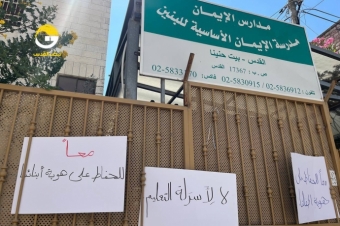 مدارس الإيمان
مدرسة الإيمان الأساسية للبنين
القدس - بيت حنينا
ص.ب 17367 القدس
02-5836912 / 02-5830915 فاكس: 02-5833170
معاً
للحفاظ على هوية أبنائنا
لا لأسرلة التعليم
معاً للحفاظ على